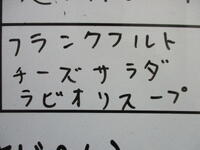 フランクフルト
チーズサラダ
ラビオリスープ